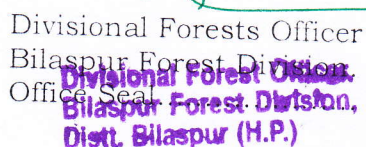 Divisional Forests Officer
Bilaspur Forest Division.
Office Seal....................
Divisional Forest Officer
Bilaspur Forest Division,
Distt. Bilaspur (H.P.)